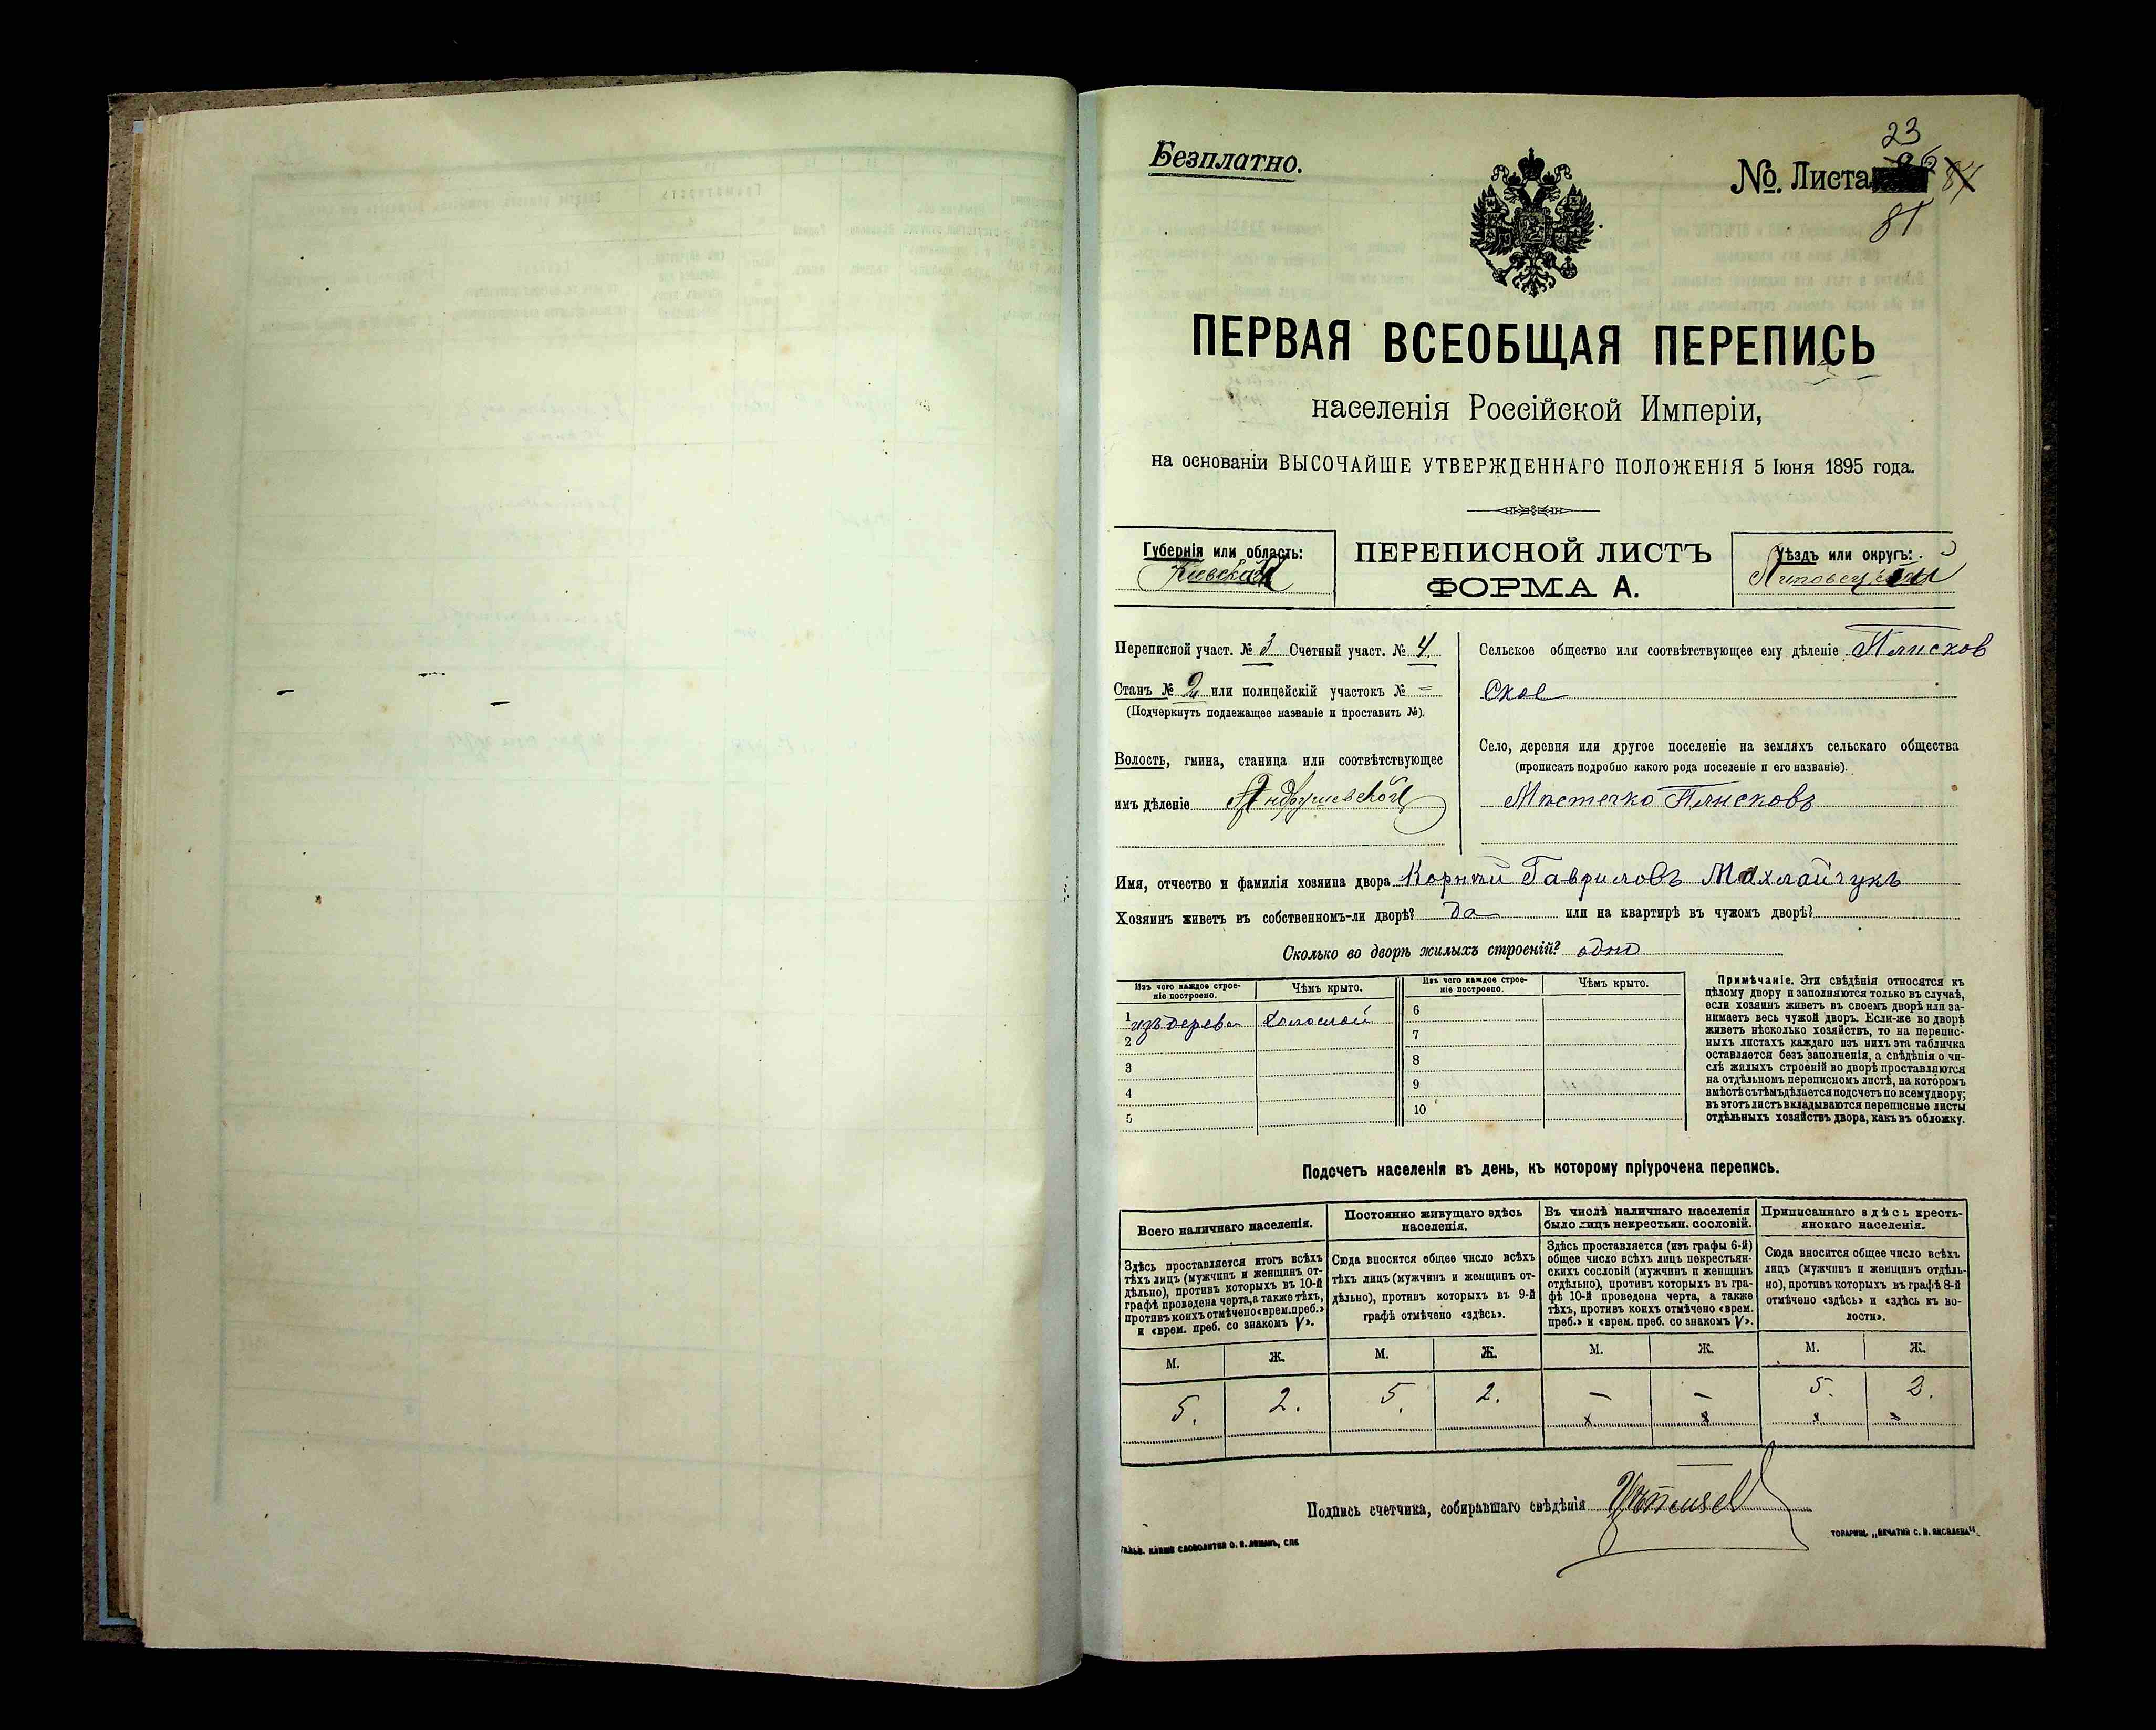 Безплатно.
23
№. Листа 86 84
81
ПЕРВАЯ ВСЕОБЩАЯ ПЕРЕПИСЬ
населенія Россійской Имперіи,
на основаніи ВЫСОЧАЙШЕ УТВЕРЖДЕННАГО ПОЛОЖЕНІЯ 5 Іюня 1895 года.
Губернія или область:
Кіевская
ПЕРЕПИСНОЙ ЛИСТЪ
ФОРМА А.
Уѣздъ или округъ:
Липовецкій
Переписной участ. № 3 Счетный участ. № 4
Станъ № 2 или полицейскій участокъ № –
(Подчеркнуть подлежащее названіе и проставить №).
Волость, гмина, станица или соотвѣтствующее
имъ дѣленіе Андрушевской
Сельское общество или соотвѣтствующее ему дѣленіе Плисков
ское
Село, деревня или другое поселеніе на земляхъ сельскаго общества
(прописать подробно какого рода поселеніе и его названіе).
Мѣстечко Плисковъ
Имя, отчество и фамилія хозяина двора Корнѣй Гавриловъ Махлайчукъ
Хозяинъ живетъ въ собственномъ-ли дворѣ? да или на квартирѣ въ чужомъ дворѣ?
Сколько во дворѣ жилыхъ строеній? одно
Изъ чего каждое строе-
ніе построено.
Чѣмъ крыто.
Изъ чего каждое строе-
ніе построено.
Чѣмъ крыто.
1 изъ дерева соломой
2
3
4
5
6
7
8
9
10
Примѣчаніе. Эти свѣдѣнія относятся къ
цѣлому двору и заполняются только въ случаѣ,
если хозяинъ живетъ въ своемъ дворѣ или за-
нимаетъ весь чужой дворъ. Если-же во дворѣ
живетъ нѣсколько хозяйствъ, то на перепис-
ныхъ листахъ каждаго изъ нихъ эта табличка
оставляется безъ заполненія, а свѣдѣнія о чи-
слѣ жилыхъ строеній во дворѣ проставляются
на отдѣльномъ переписномъ листѣ, на которомъ
вмѣстѣ съ тѣмъ дѣлается подсчетъ по всему двору;
въ этотъ листъ вкладываются переписные листы
отдѣльныхъ хозяйствъ двора, какъ въ обложку.
Подсчетъ населенія въ день, къ которому пріурочена перепись.
Всего наличнаго населенія.
Здѣсь проставляется итогъ всѣхъ
тѣхъ лицъ (мужчинъ и женщинъ от-
дѣльно), противъ которыхъ въ 10-й
графѣ проведена черта, а также тѣхъ,
противъ коихъ отмѣчено «врем. преб.»
и «врем. преб. со знакомъ V».
Постоянно живущаго здѣсь
населенія.
Сюда вносится общее число всѣхъ
тѣхъ лицъ (мужчинъ и женщинъ от-
дѣльно), противъ которыхъ въ 9-й
графѣ отмѣчено «здѣсь».
Въ числѣ наличнаго населенія
было лицъ некрестьян. сословій.
Здѣсь проставляется (изъ графы 6-й)
общее число всѣхъ лицъ некрестьян-
скихъ сословій (мужчинъ и женщинъ
отдѣльно), противъ которыхъ въ гра-
фѣ 10-й проведена черта, а также
тѣхъ, противъ коихъ отмѣчено «врем.
преб.» и «врем. преб. со знакомъ V».
Приписаннаго здѣсь кресть-
янскаго населенія.
Сюда вносится общее число всѣхъ
лицъ (мужчинъ и женщинъ отдѣль-
но), противъ которыхъ въ графѣ 8-й
отмѣчено «здѣсь» и «здѣсь къ во-
лости».
М. Ж. М. Ж. М. Ж. М. Ж.
5. 2. 5. 2. – – 5. 2.
Подпись счетчика, собиравшаго свѣдѣнія
ТОВАРИЩ. „ПЕЧАТНЯ С. П. ЯКОВЛЕВА“.